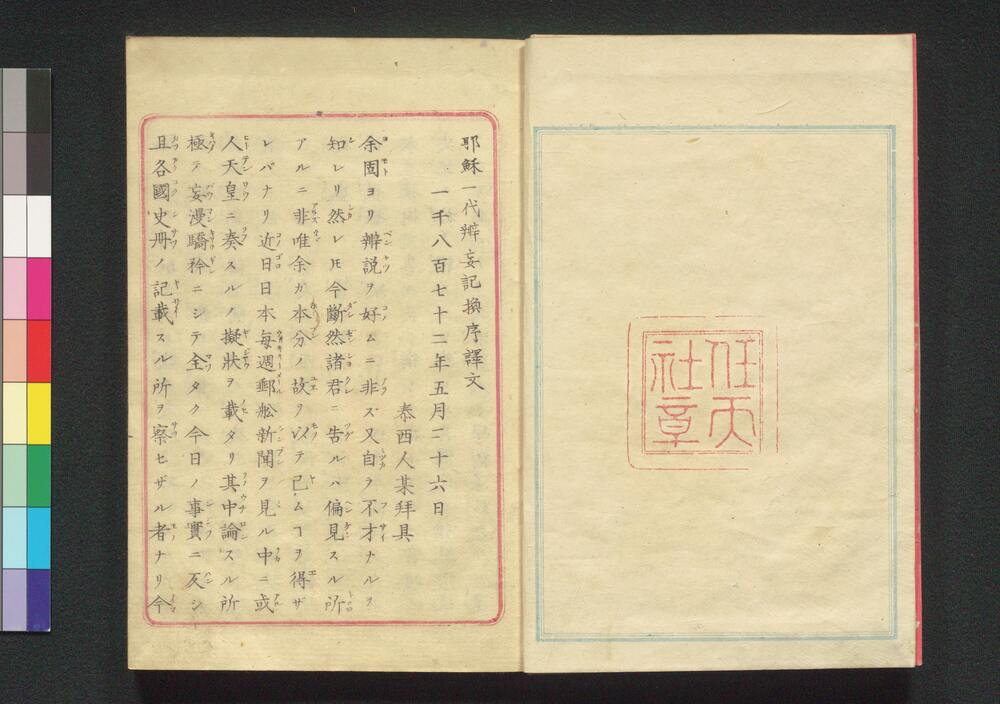 任天
社章
耶穌一代辨妄記換序譯文
一千八百七十二年五月二十六日
泰西人某拜具
余固ヨリ辨説ヲ好ムニ非ズ又自ラ不才ナルヲ
知レリ然レ𪜈今斷然諸君ニ告ルハ偏見スル所
アルニ非唯余ガ本分ノ故ヲ以テ已ムヿヲ得ザ
レバナリ近日日本毎週郵舩新聞ヲ見ル中ニ或
人天皇ニ奏スルノ擬狀ヲ載タリ其中論スル所
極テ妄漫驕矜ニシテ全タク今日ノ事實ニ反シ
且各國史册ノ記載スル所ヲ察セザル者ナリ今